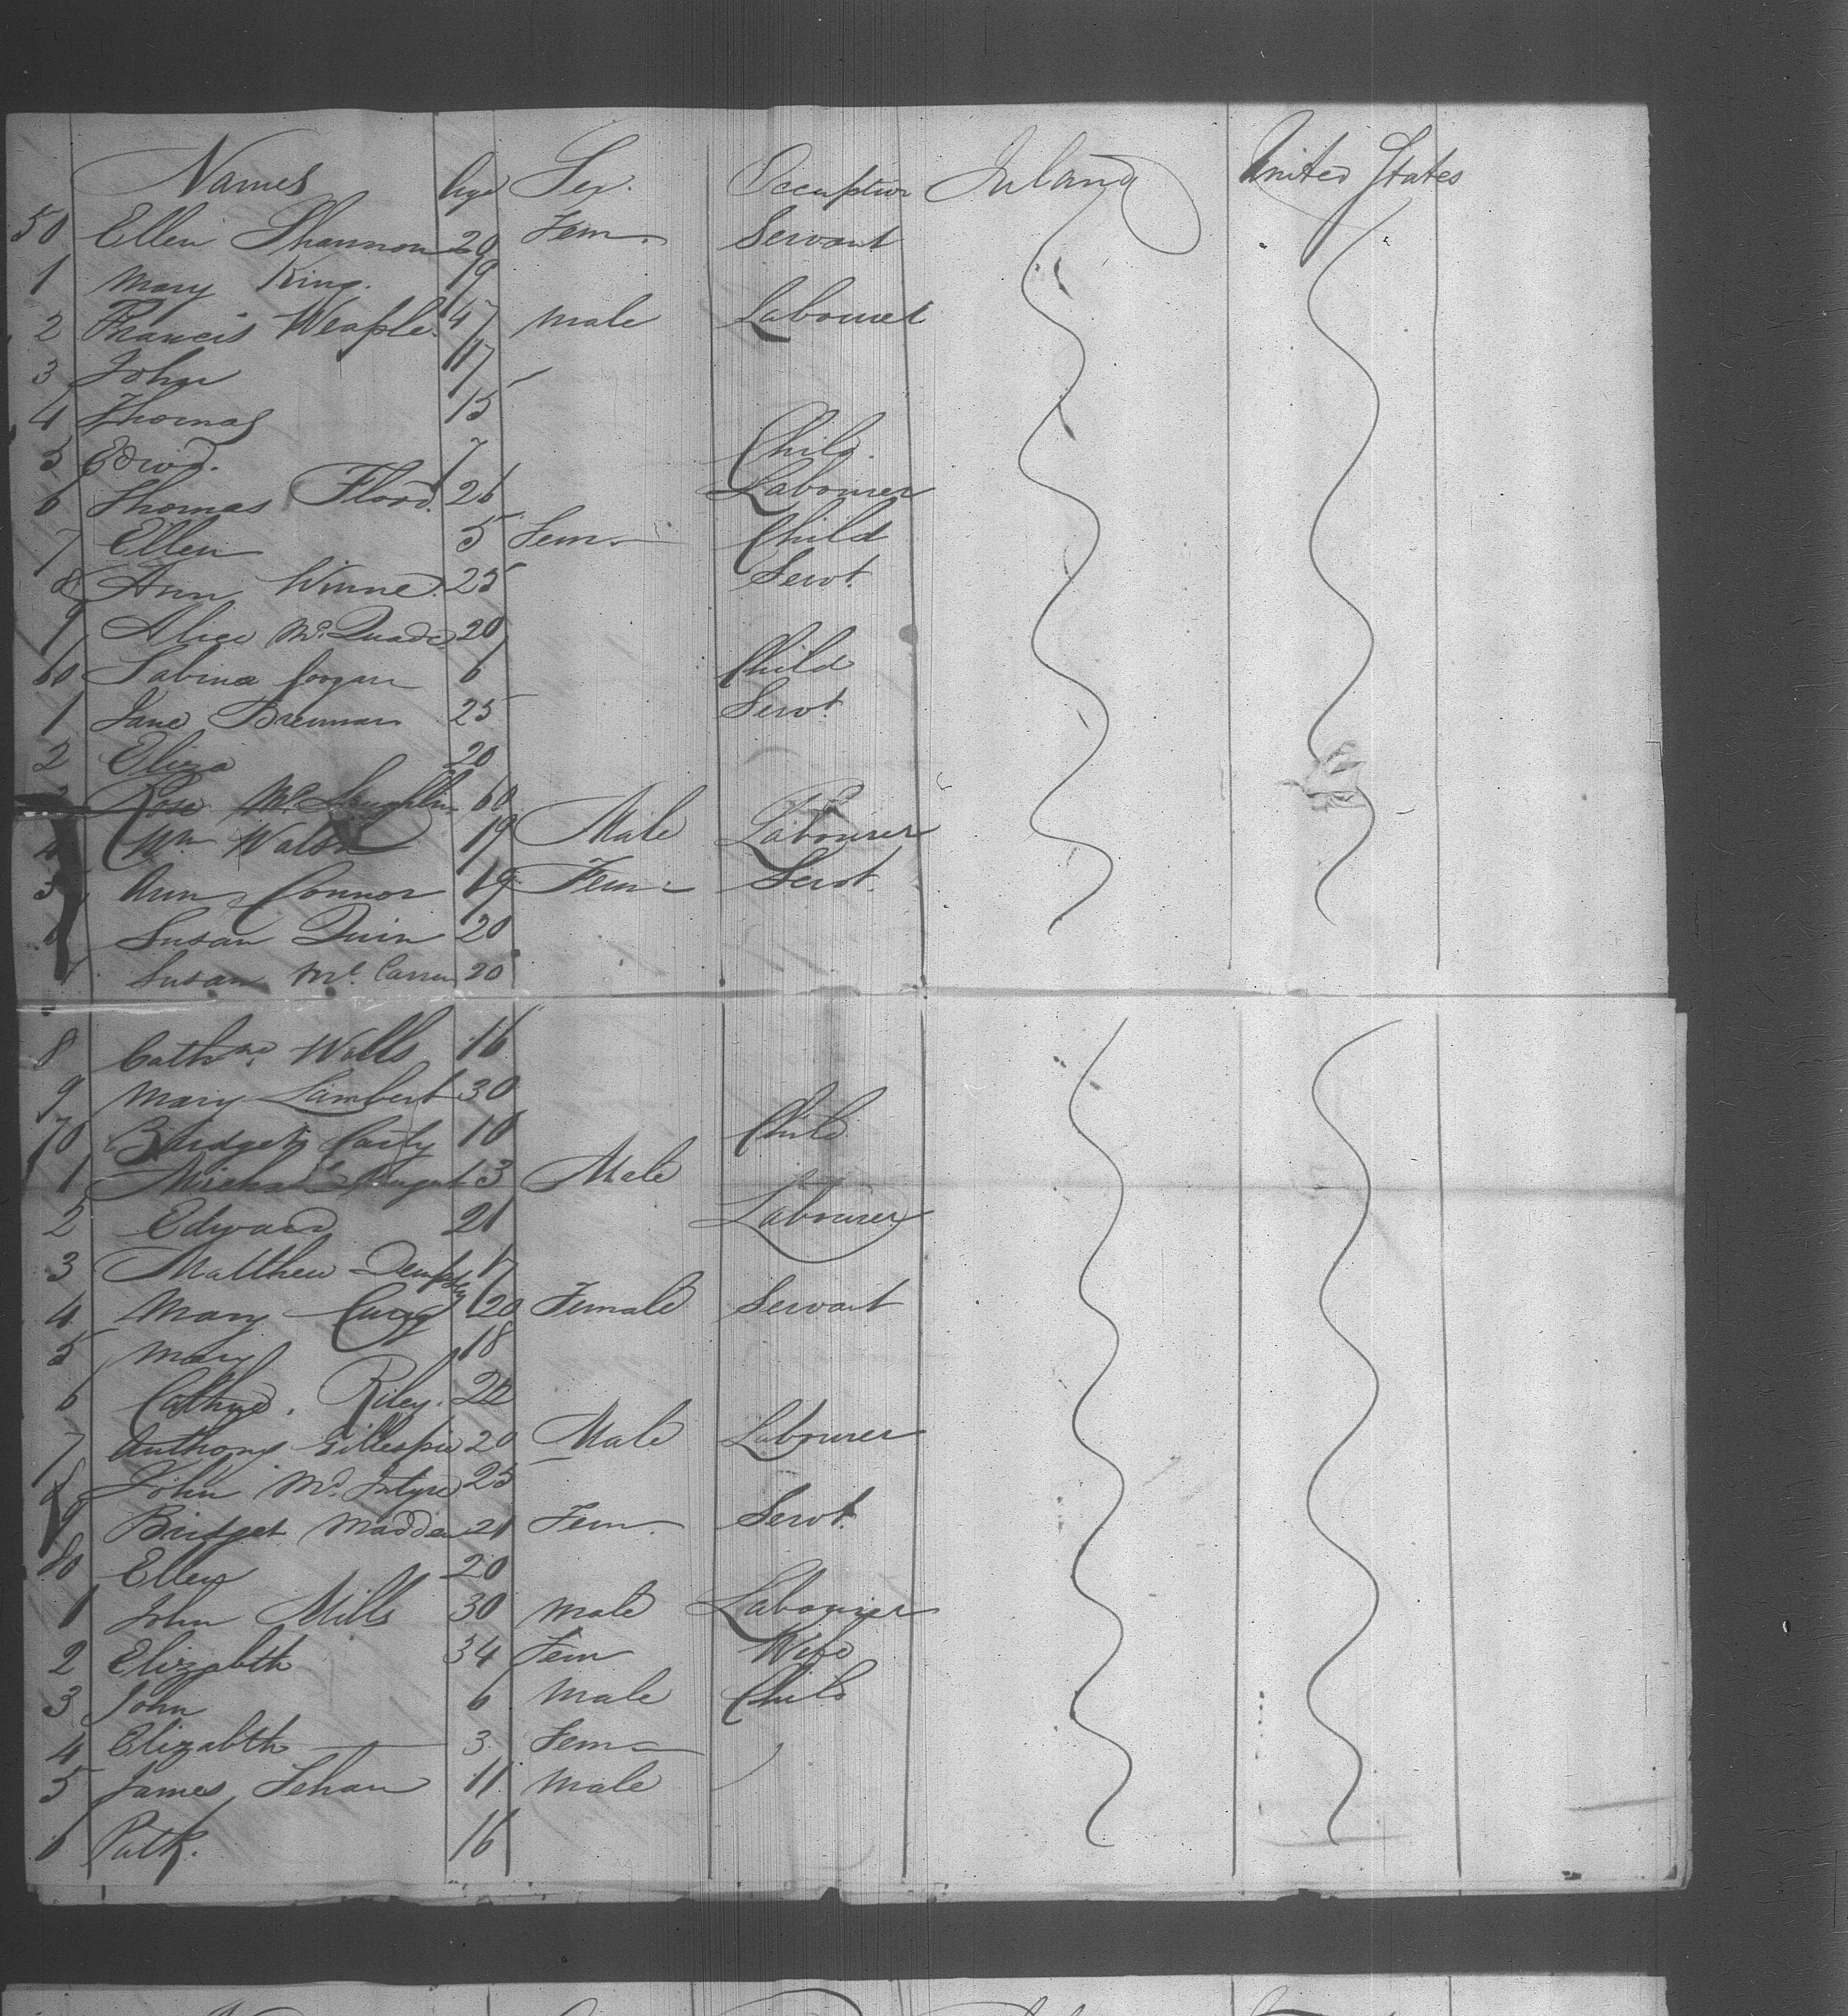 Names Age Sex. Occuption Ireland United States
50 Ellen Shannon 20 Fem. Servant
1 Mary King. 19
2 Francis Weaple. 47 male Labourer
3 John 17
4 Thomas 15
5 Edwd. 7 Child.
6 Thomas Flood. 26 Labourer
7 Ellen 5 Fem. Child
8 Ann Winne. 25 Servt.
9 Alice McQuade 20
60 Sabina 6 Child
1 Jane Brennan 25 Servt.
2 Eliza 20
3 Rose McLaughlin 60
4 Wm Walsh 19 Male Labourer
5 Ann Connor 19 Fem. Servt.
6 Susan Quin 20
7 Susan McCarren 20
8 Cathne. Walls 16
9 Mary Lambert 30
70 Bridget 10 Child
1 Michal Nugent 13 Male
2 Edward 21 Labourer
3 Matthew Dempsey 17
4 Mary 20 Female Servant
5 Mary 18
6 Cathne. Riley. 22
7 Anthony Gillespie 20 Male Labourer
8 John McIntyre 25
9 Bridget Madden 21 Fem. Servt.
80 Ellen 20
1 John Mills 30 male Labourer
2 Elizabth 34 Fem Wife
3 John 6 Male Child
4 Elizabth 3 Fem
5 James Lehan 11 Male
6 Patk. 16